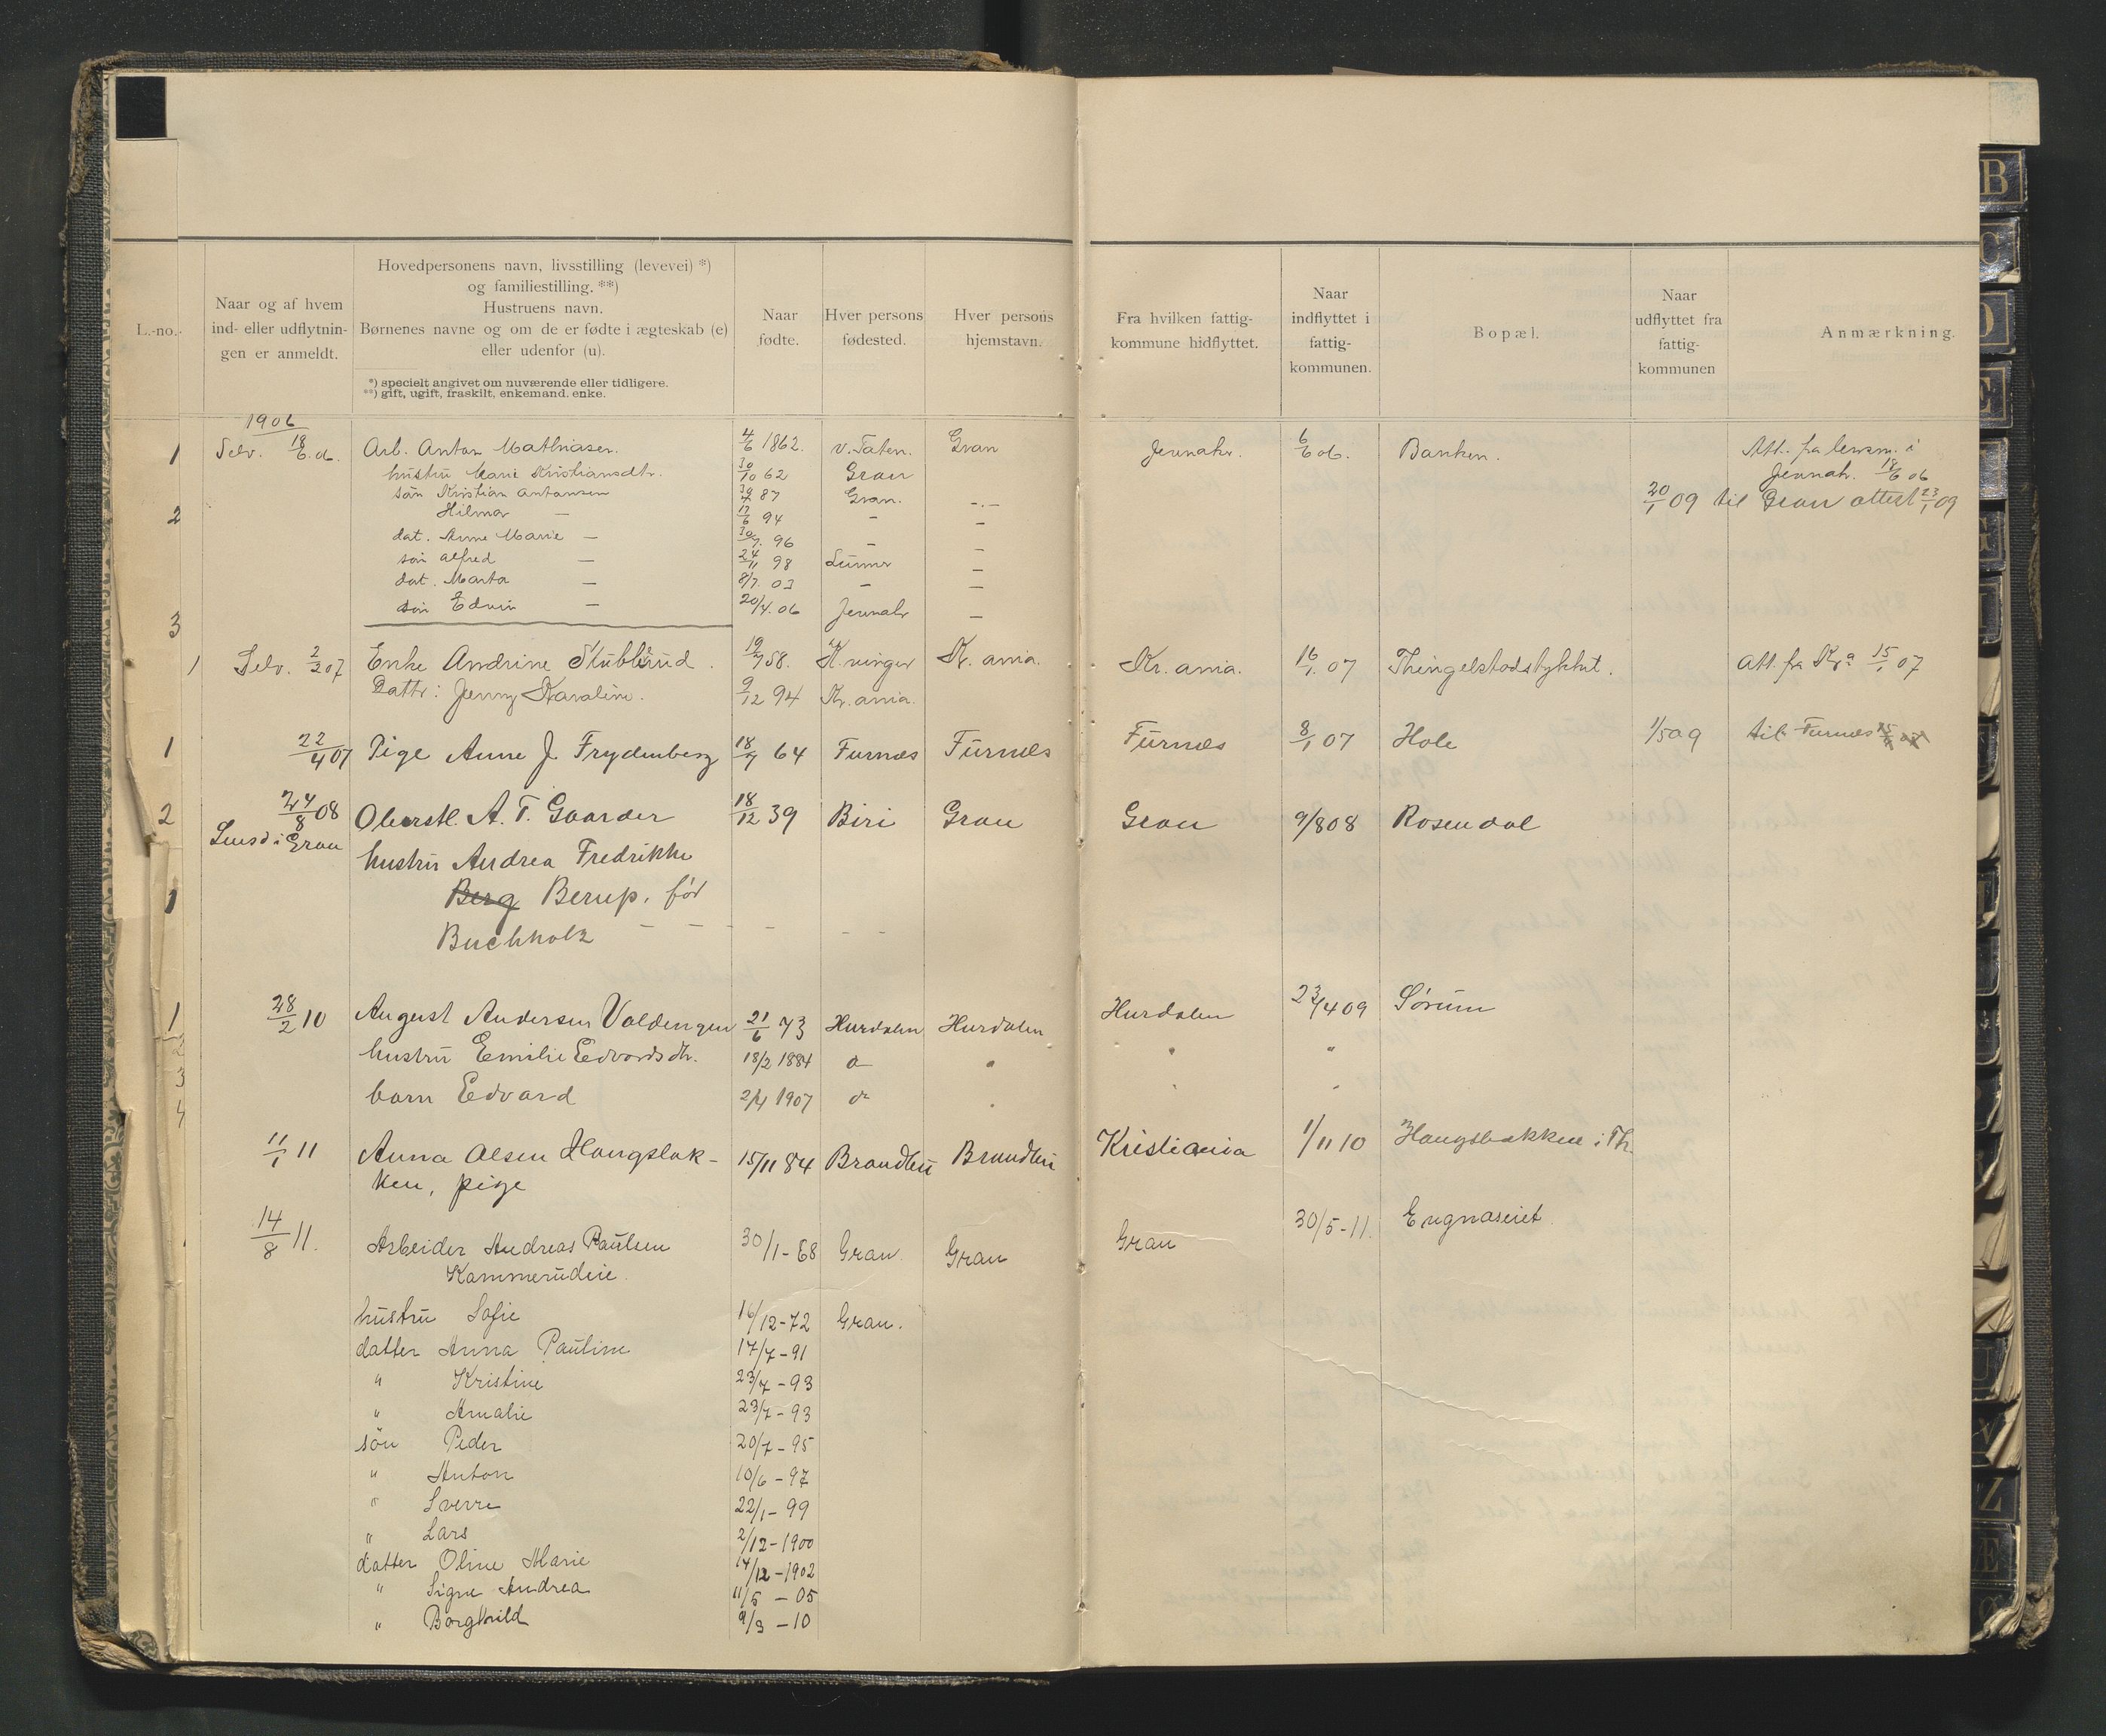 L.-no.
Naar og af hvem
ind- eller udflytnin-
gen er anmeldt.
Hovedpersonens navn, livsstilling (levevei) *)
og familiestilling. **)
Hustruens navn.
Børnenes navne og om de er fødte i ægteskab (e)
eller udenfor (u).
*) specielt angivet om nuværende eller tidligere.
**) gift, ugift, fraskilt, enkemand, enke.
Naar
fødte.
Hver persons
fødested.
Hver persons
hjemstavn.
Fra hvilken fattig-
kommune hidflyttet.
Naar
indflyttet i
fattig-
kommunen.
Bopæl.
Naar
udflyttet fra
fattig-
kommunen
Anmærkning.
1906
1 Selv. 18/6.06. Arb. Anton Mathiasen. 4/6 1862. v. Toten. Gran Jevnakr. 6/6 06. Banken. Att. fra lensm. i
Jevnakr. 18/6 06
hustru Marie Kristiansdtr. 30/10 62 Gran
søn Kristian Antonsen 30/7 87 Gran. -.- 20/1 09 til Gran attest 23/1 09
2 Hilmar — 17/6 94 - -
dat. Anne Marie — 30/7. 96 - -
søn Alfred — 24/11 98 Lunner -
dat. Marta — 8/7. 03 - -
3 søn Edvin — 20/4. 06 Jevnakr -
1 Selv. 2/2 07 Enke Andrine Stubberud. 19/7 58. K.vinger Kr. ania. Kr. ania. 16/1. 07 Thingelstadstykket. Att. fra Kra 15/1 07
Dattr: Jenny Karoline. 9/12 94 Kr. ania.
1 22/4 07 Pige Anne J. Frydenberg 18/7 64 Furnæs Furnæs Furnæs 8/1 07 Hole 1/5 09 til Furnæs
2 24/8 08 Oberstl. A. T. Gaarder 18/12 39 Biri Gran Gran 9/8 08 Rosendal
Lensd. i Gran
hustru Andrea Fredrikke
1 Berg Berup. før
Buchholz - - - - -
1 28/2 10 August Andersen Valdengen 21/6 73 Hurdalen Hurdalen Hurdalen 23/4 09 Sørum
2 hustru Emilie Edvardsdtr. 18/2 1884 do " " "
3 barn Edvard 2/4 1907 do " " "
4
11/1 11 Anna Olsen Haugsbak- 15/11 84 Brandbu Brandbu Kristiania 1/11 10 Haugsbakken i Th.
ken, pige
14/8 11. Arbeider Andreas Paulsen 30/1-68 Gran. Gran Gran 30/5-11. Engnaseiet
Kammerudeie.
hustru Sofie 16/12-72 Gran.
datter Anna Pauline 17/7-91
" Kristine 23/7-93
" Amalie 23/7-93
søn Peder 20/7-95
" Anton 10/6-97
" Sverre 22/1-99
" Lars 2/12-1900
datter Oline Marie 14/12-1902
" Signe Andrea 11/5-05
" Borghild 9/3-10
B
C
D
E
G
U
V
Z
Æ
Ø